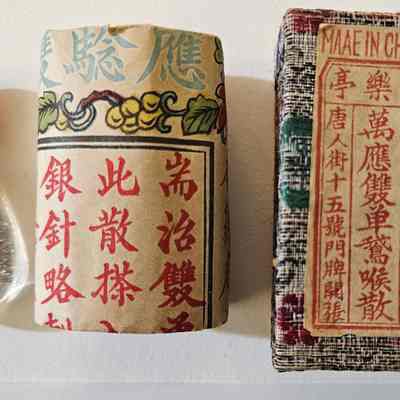 應騐雙
耑治雙
此散搽
銀針略
MAAE IN CH
樂亭
萬應雙單鵞喉散
唐人街十五號門牌開張